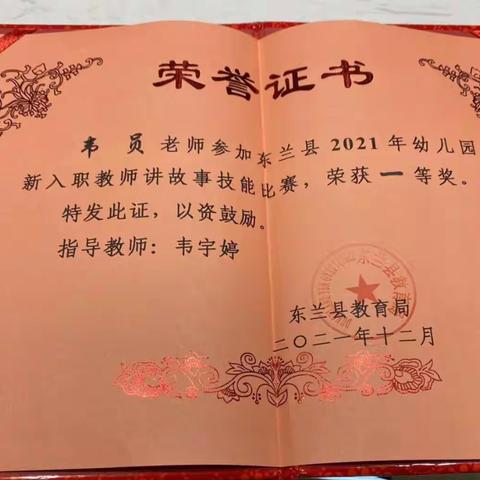 荣誉证书
韦员 老师参加东兰县2021年幼儿园
新入职教师讲故事技能比赛，荣获一等奖。
特发此证，以资鼓励。
指导教师：韦宇婷
东兰县教育局
二〇二一年十二月